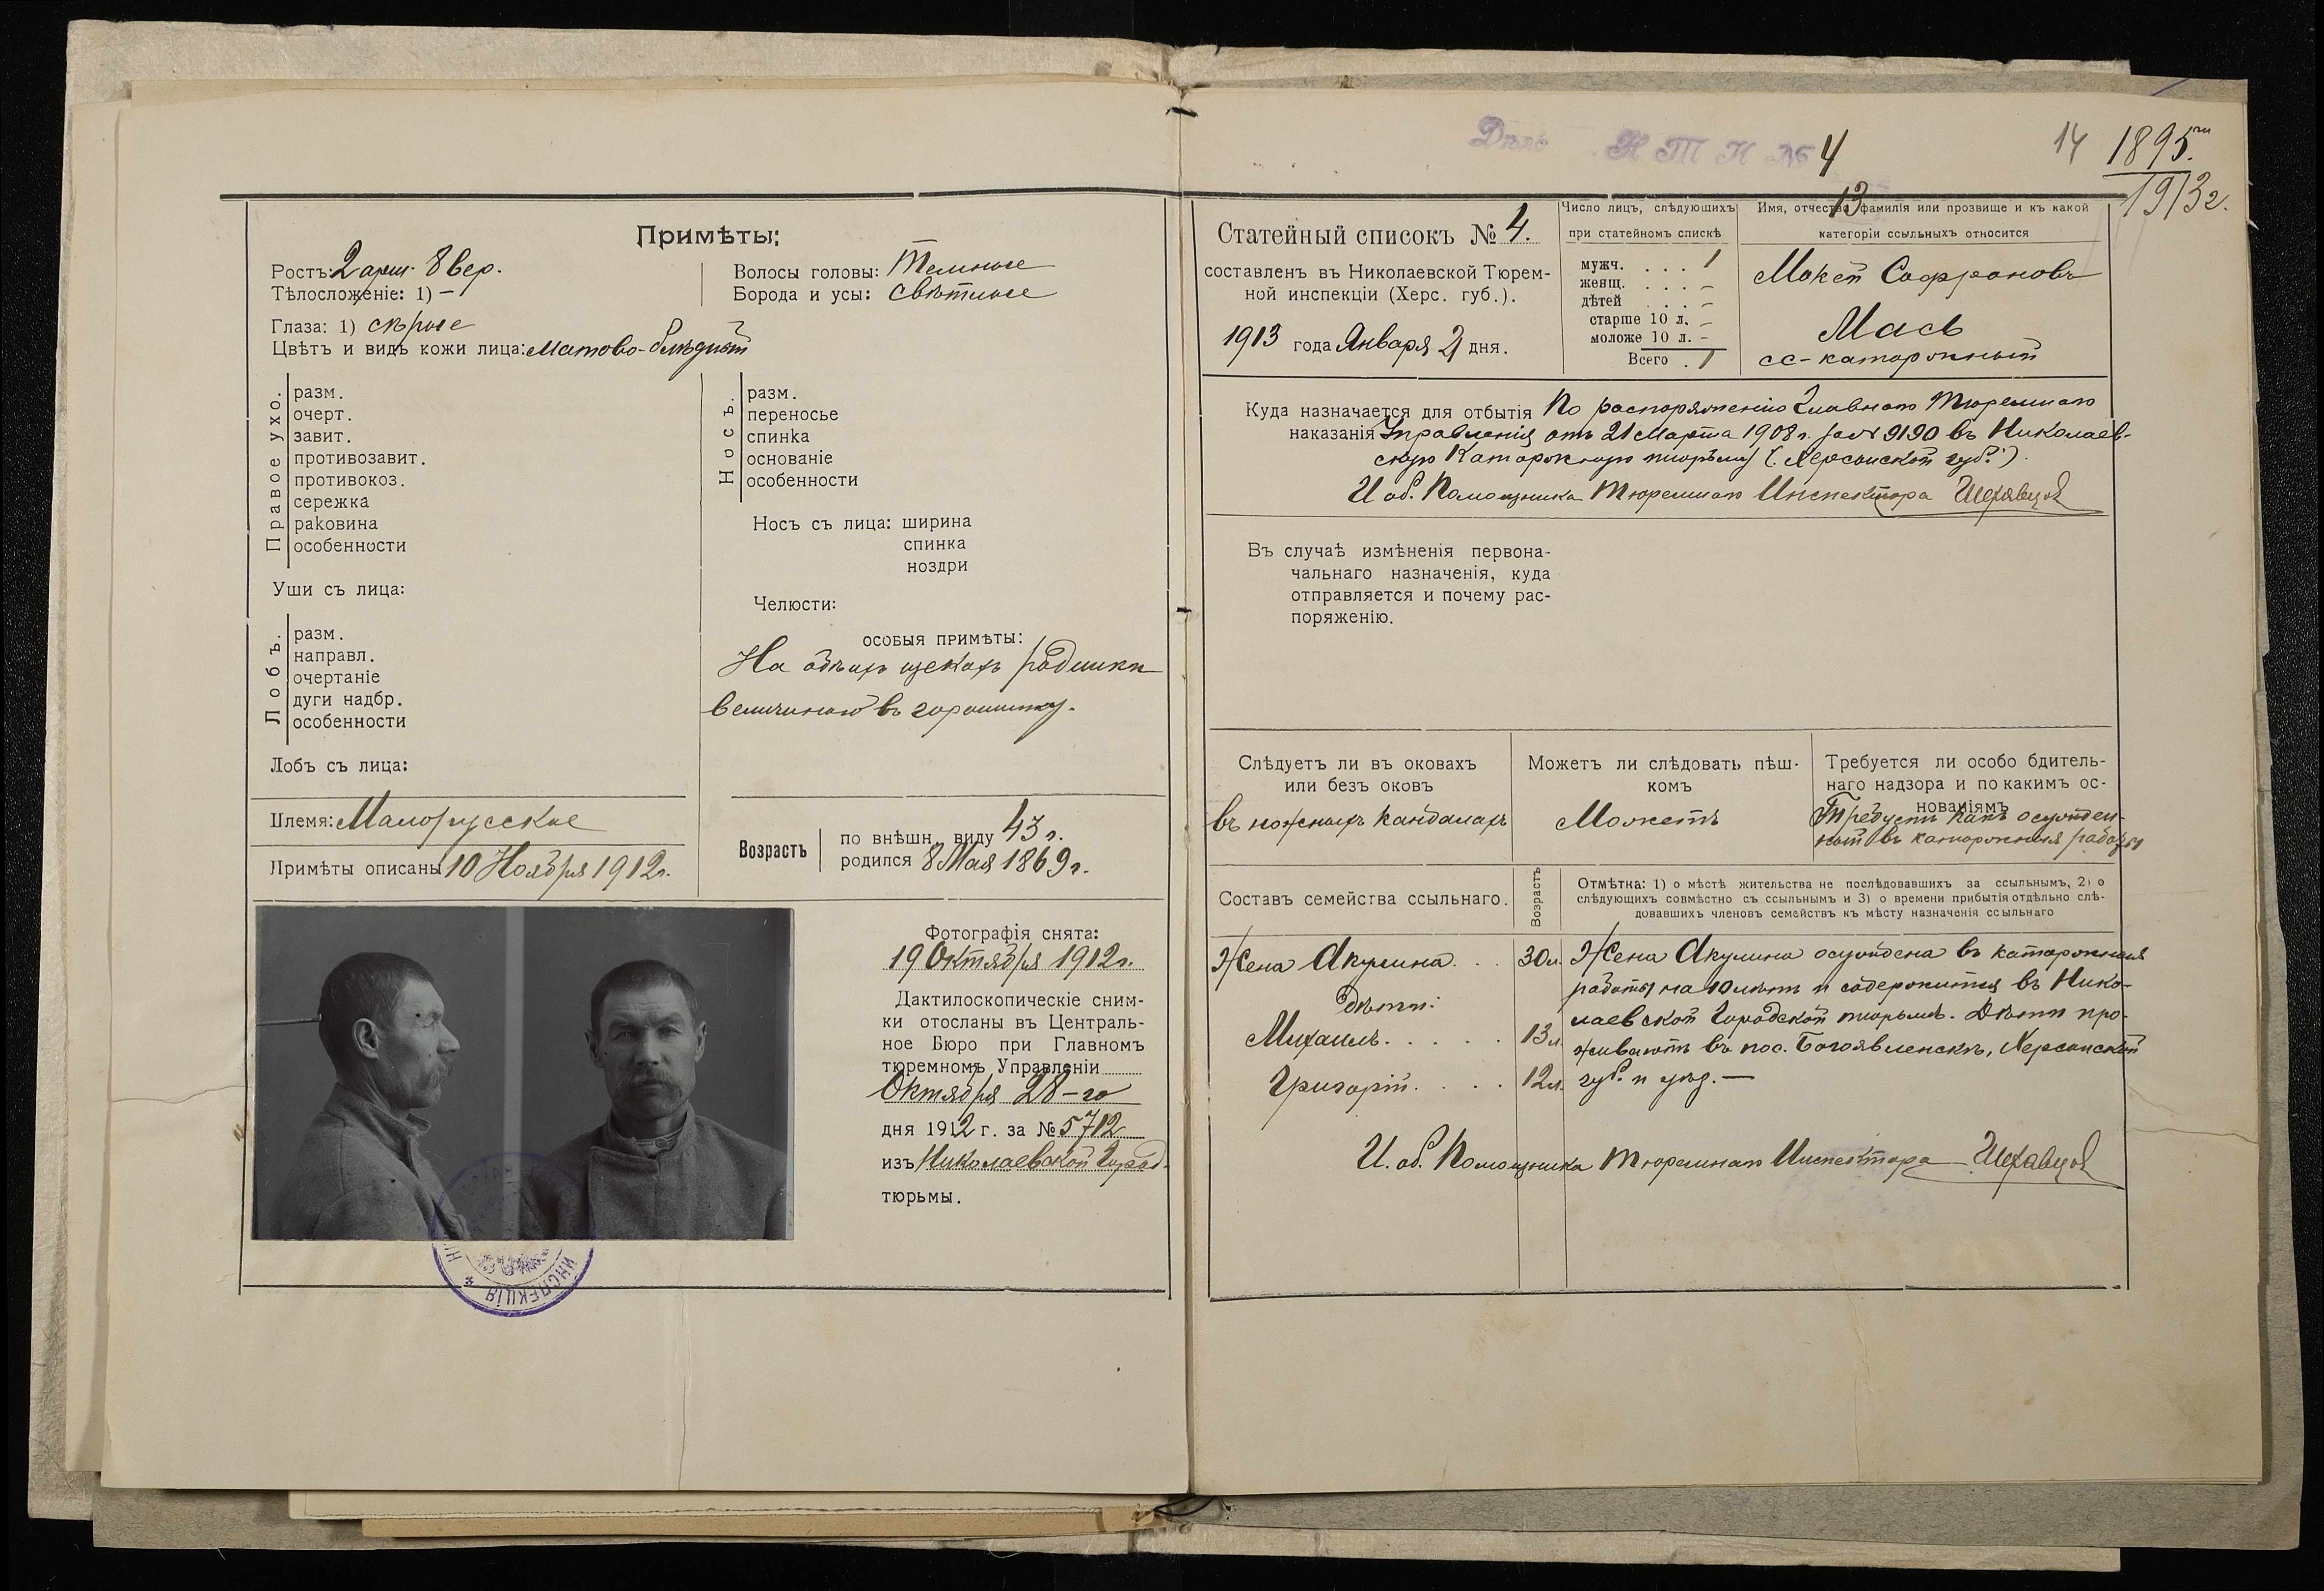 Примѣты:
Ростъ: 2 арш. 8 вер.
Тѣлосложеніе: 1) —
Глаза: 1) сѣрые
Цвѣтъ и видъ кожи лица: матово-блѣдный
Волосы головы: Темные
Борода и усы: свѣтлые
Правое ухо.
разм.
очерт.
завит.
противозавит.
противокоз.
сережка
раковина
особенности
Уши съ лица:
Лобъ.
разм.
направл.
очертаніе
дуги надбр.
особенности
Лобъ съ лица:
Носъ.
разм.
переносье
спинка
основаніе
особенности
Носъ съ лица: ширина
спинка
ноздри
Челюсти:
особыя примѣты:
На обѣихъ щекахъ родинки
величиною въ горошинку.
Племя: Малорусское
Примѣты описаны 10 Ноября 1912г.
Возрастъ
по внѣшн. виду 43 г.
родился 8 Мая 1869г.
Фотографія снята:
19 Октября 1912г.
Дактилоскопическіе сним-
ки отосланы въ Централь-
ное Бюро при Главномъ
тюремномъ Управленіи
Октября 28-го
дня 1912 г. за № 5712
изъ Николаевской Город.
тюрьмы.
ИНСПЕКЦІЯ
Дѣло Н Т И № 4
13
14
1895
1913г.
Статейный списокъ № 4.
составленъ въ Николаевской Тюрем-
ной инспекціи (Херс. губ.).
1913 года Января 2 дня.
Число лицъ, слѣдующихъ
при статейномъ спискѣ
мужч. . . . 1
женщ. . . . –
дѣтей . . . –
старше 10 л. –
моложе 10 л. –
Всего . 1
Имя, отчество фамилія или прозвище и къ какой
категоріи ссыльныхъ относится
Мокей Софроновъ
Мась
сс-каторжный
Куда назначается для отбытія
наказанія
По распоряженію Главнаго Тюремнаго
Управленія отъ 21 Марта 1908 г. за № 9190 въ Николаев-
скую Каторжную тюрьму (Херсонской губ.).
И об. Помощника Тюремнаго Инспектора
Въ случаѣ измѣненія первона-
чальнаго назначенія, куда
отправляется и почему рас-
поряженію.
Слѣдуетъ ли въ оковахъ
или безъ оковъ
въ ножныхъ кандалахъ
Можетъ ли слѣдовать пѣш-
комъ
Можетъ
Требуется ли особо бдитель-
наго надзора и по какимъ ос-
нованіямъ
Требуетъ какъ осужден-
ный въ каторжныя работы
Составъ семейства ссыльнаго.
Возрастъ
Отмѣтка: 1) о мѣстѣ жительства не послѣдовавшихъ за ссыльнымъ, 2) о
слѣдующихъ совмѣстно съ ссыльнымъ и 3) о времени прибытія отдѣльно слѣ-
довавшихъ членовъ семействъ къ мѣсту назначенія ссыльнаго
Жена Акулина . . 30л.
дѣти:
Михаилъ . . . . . 13л.
Григорій . . . . 12л.
Жена Акулина осуждена въ каторжныя
работы на 10 лѣтъ и содержится въ Нико-
лаевской Городской тюрьмѣ. Дѣти про-
живаютъ въ пос. Богоявленскѣ, Херсонской
губ. и уѣзд. —
И. об. Помощника Тюремнаго Инспектора